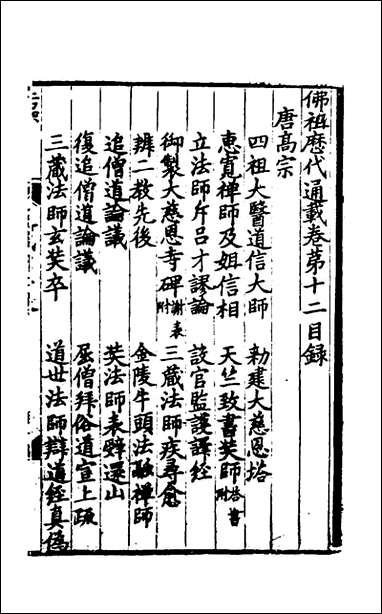 佛祖歷代通載卷第十二目錄
唐高宗
四祖大醫道信大師 勑建大慈恩塔
惠寬禪師及姐信相 天竺致書奘師答書附
立法師斥呂才謬論 設官監護譯經
御製大慈恩寺碑謝表附 三藏法師疾尋愈
辨二教先後 金陵牛頭法融禪師
追僧道論議 奘法師表辭還山
復追僧道論議 屈僧拜俗道宣上疏
三藏法師玄奘卒 道世法師辯道經真僞